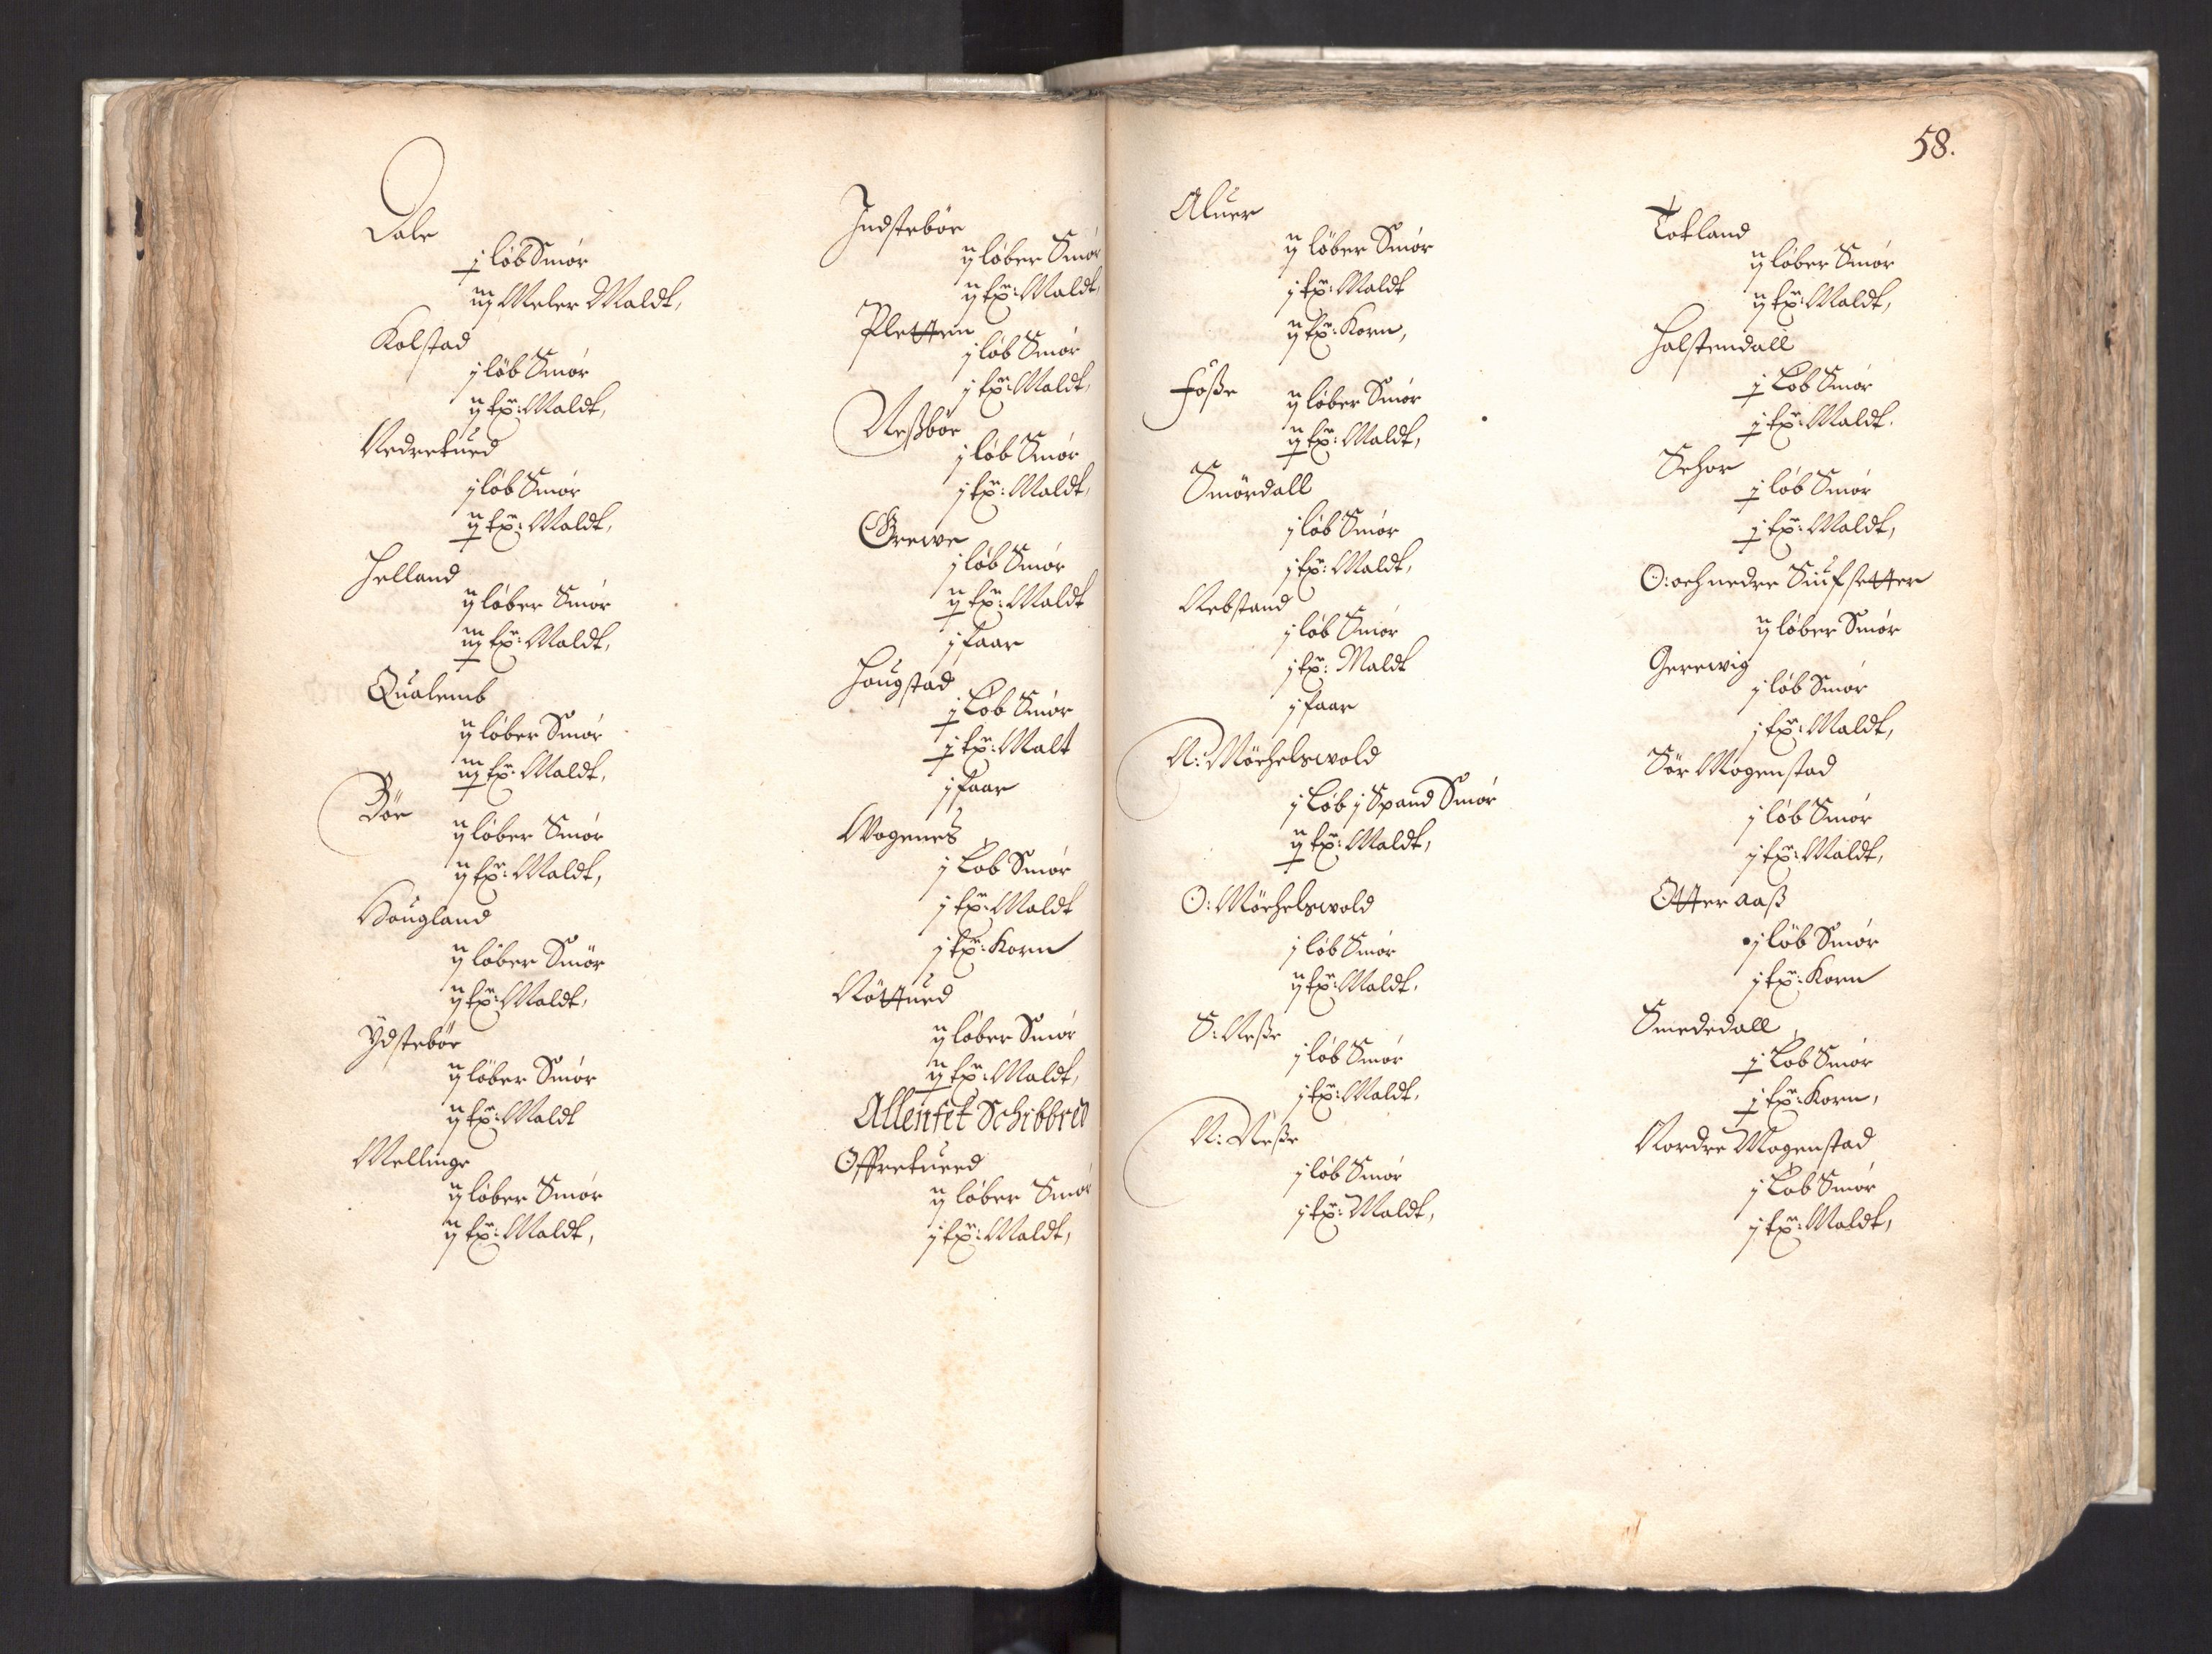 Dale
j løb Smör
iij Meler Maldt,
Kolstad
j løb Smör
ij tr: Maldt,
Nedretued
j løb Smör
ij tr: Maldt,
Helland
ij løber Smör
iij tr: Maldt,
Qualemb
ij løber Smör
iij tr: Maldt,
Böe
ij løber Smör
ij tr: Maldt,
Hougland
ij løber Smör
ij tr: Maldt,
Ydsteböe
ij løber Smör
ij tr: Maldt
Mellinge
ij løber Smör
ij tr: Maldt,
Indsteböe
ij løber Smör
ij tr: Maldt,
Pletten
j løb Smör
j tr: Maldt,
Neßböe
j løb Smör
j tr: Maldt,
Grewe
j løb Smör
ij tr: Maldt
j faar
Hougstad
j Løb Smör
j tr: Malt
j faar
Wogenes
j Løb Smör
j tr: Maldt
j tr: Korn
Nöttued
ij løber Smör
ij tr: Maldt,
Allenfet Schibbred
Offretued
ij løber Smör
j tr: Maldt,
58.
Aluer
ij løber Smör
j tr: Maldt
ij tr: Korn,
Foße
ij løber Smör
ij tr: Maldt,
Smördall
j løb Smör
j tr: Maldt,
Rebstand
j løb Smör
j tr: Maldt
j faar
N: Möchelswold
j Løb j Spand Smör
ij tr: Maldt,
O: Möchelswold
j løb Smör
ij tr: Maldt.
S: Neße
j løb Smör
j tr: Maldt,
N: Neße
j løb Smör
j tr: Maldt,
Totland
ij løber Smör
ij tr: Maldt,
Halstendall
j Løb Smör
j tr: Maldt.
Schor
j løb Smör
j tr: Maldt,
O: och nedre Siufsetter
ij løber Smör
Gerewig
j løb Smör
j tr: Maldt,
Sör Mogenstad
j løb Smör
j tr: Maldt,
Otter aaß
j løb Smör
j tr: Korn
Smededall
j Løb Smör
j tr: Korn,
Nordre Mogenstad
j Løb Smör
j tr: Maldt,